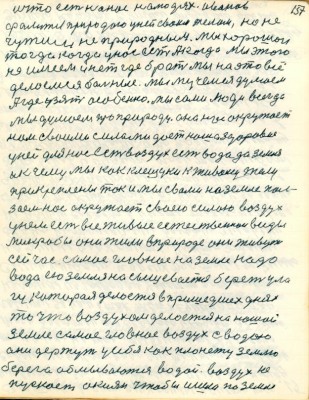 157
что естканае на людях. иванов
сралится природаю уней своим телом, но не
чужим, не природным. мы хорошои
тогда когда у нас есть. а когда мы этого
не имеем у нет где брать мы на это всё
делаемся больные. мы мучемся думаем
а где взять особенно. мы сами люди всегда
мы думаем про природу, она нас окружает
нам своими силами даёт наша здоровье
уней для нас есть воздух есть вода да земля
а к чему мы как клещуки к живому телу
прикреплены ток и мы свали на земле пол-
заем нас окружает своею силою воздух
унем есть все живае естественнои виды
микробы они жили вприроде они живут
сей час самое главное на земле надо
вода ею земля насыщевается берет ула
гу которая делостся впришедших днях
то что воздухом делостся на нашой
земле самое главное воздух с водою
они держут усебя как планету землю
берега обмываются водой. воздух не
пускает окиян чтобы ишло по земле